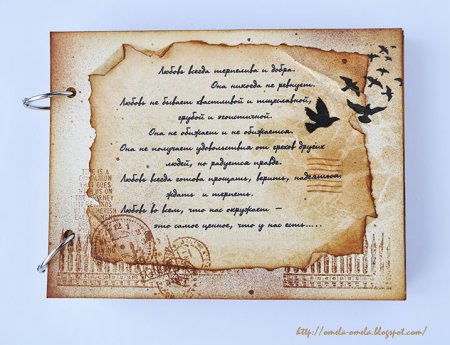 Любовь всегда терпелива и добра.
Она никогда не ревнует.
Любовь не бывает хвастливой и тщеславной,
грубой и эгоистичной.
Она не обижает и не обижается.
Она не получает удовольствия от грехов других
людей, но радуется правде.
Любовь всегда готова прощать, верить, надеяться,
ждать и терпеть.
Любовь во всем, что нас окружает –
это самое ценное, что у нас есть.....
http://omela-omela.blogspot.com/